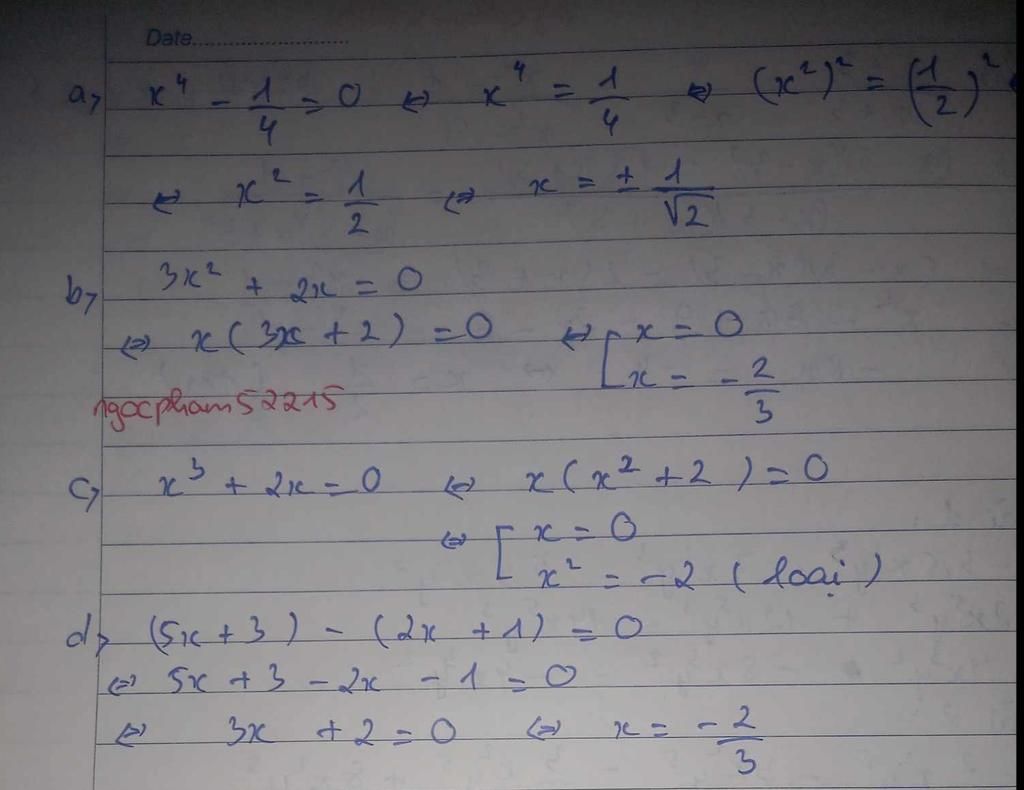 Date........................
a, x⁴ - 1/4 = 0 ⇔ x⁴ = 1/4 ⇔ (x²)² = (1/2)²
⇔ x² = 1/2 ⇔ x = ± 1/√2
b, 3x² + 2x = 0
⇔ x(3x + 2) = 0 ⇔ [ x = 0
x = - 2/3
ngocpham52215
c, x³ + 2x = 0 ⇔ x(x² + 2) = 0
⇔ [ x = 0
x² = -2 (loại)
d, (5x + 3) - (2x + 1) = 0
⇔ 5x + 3 - 2x - 1 = 0
⇔ 3x + 2 = 0 ⇔ x = - 2/3